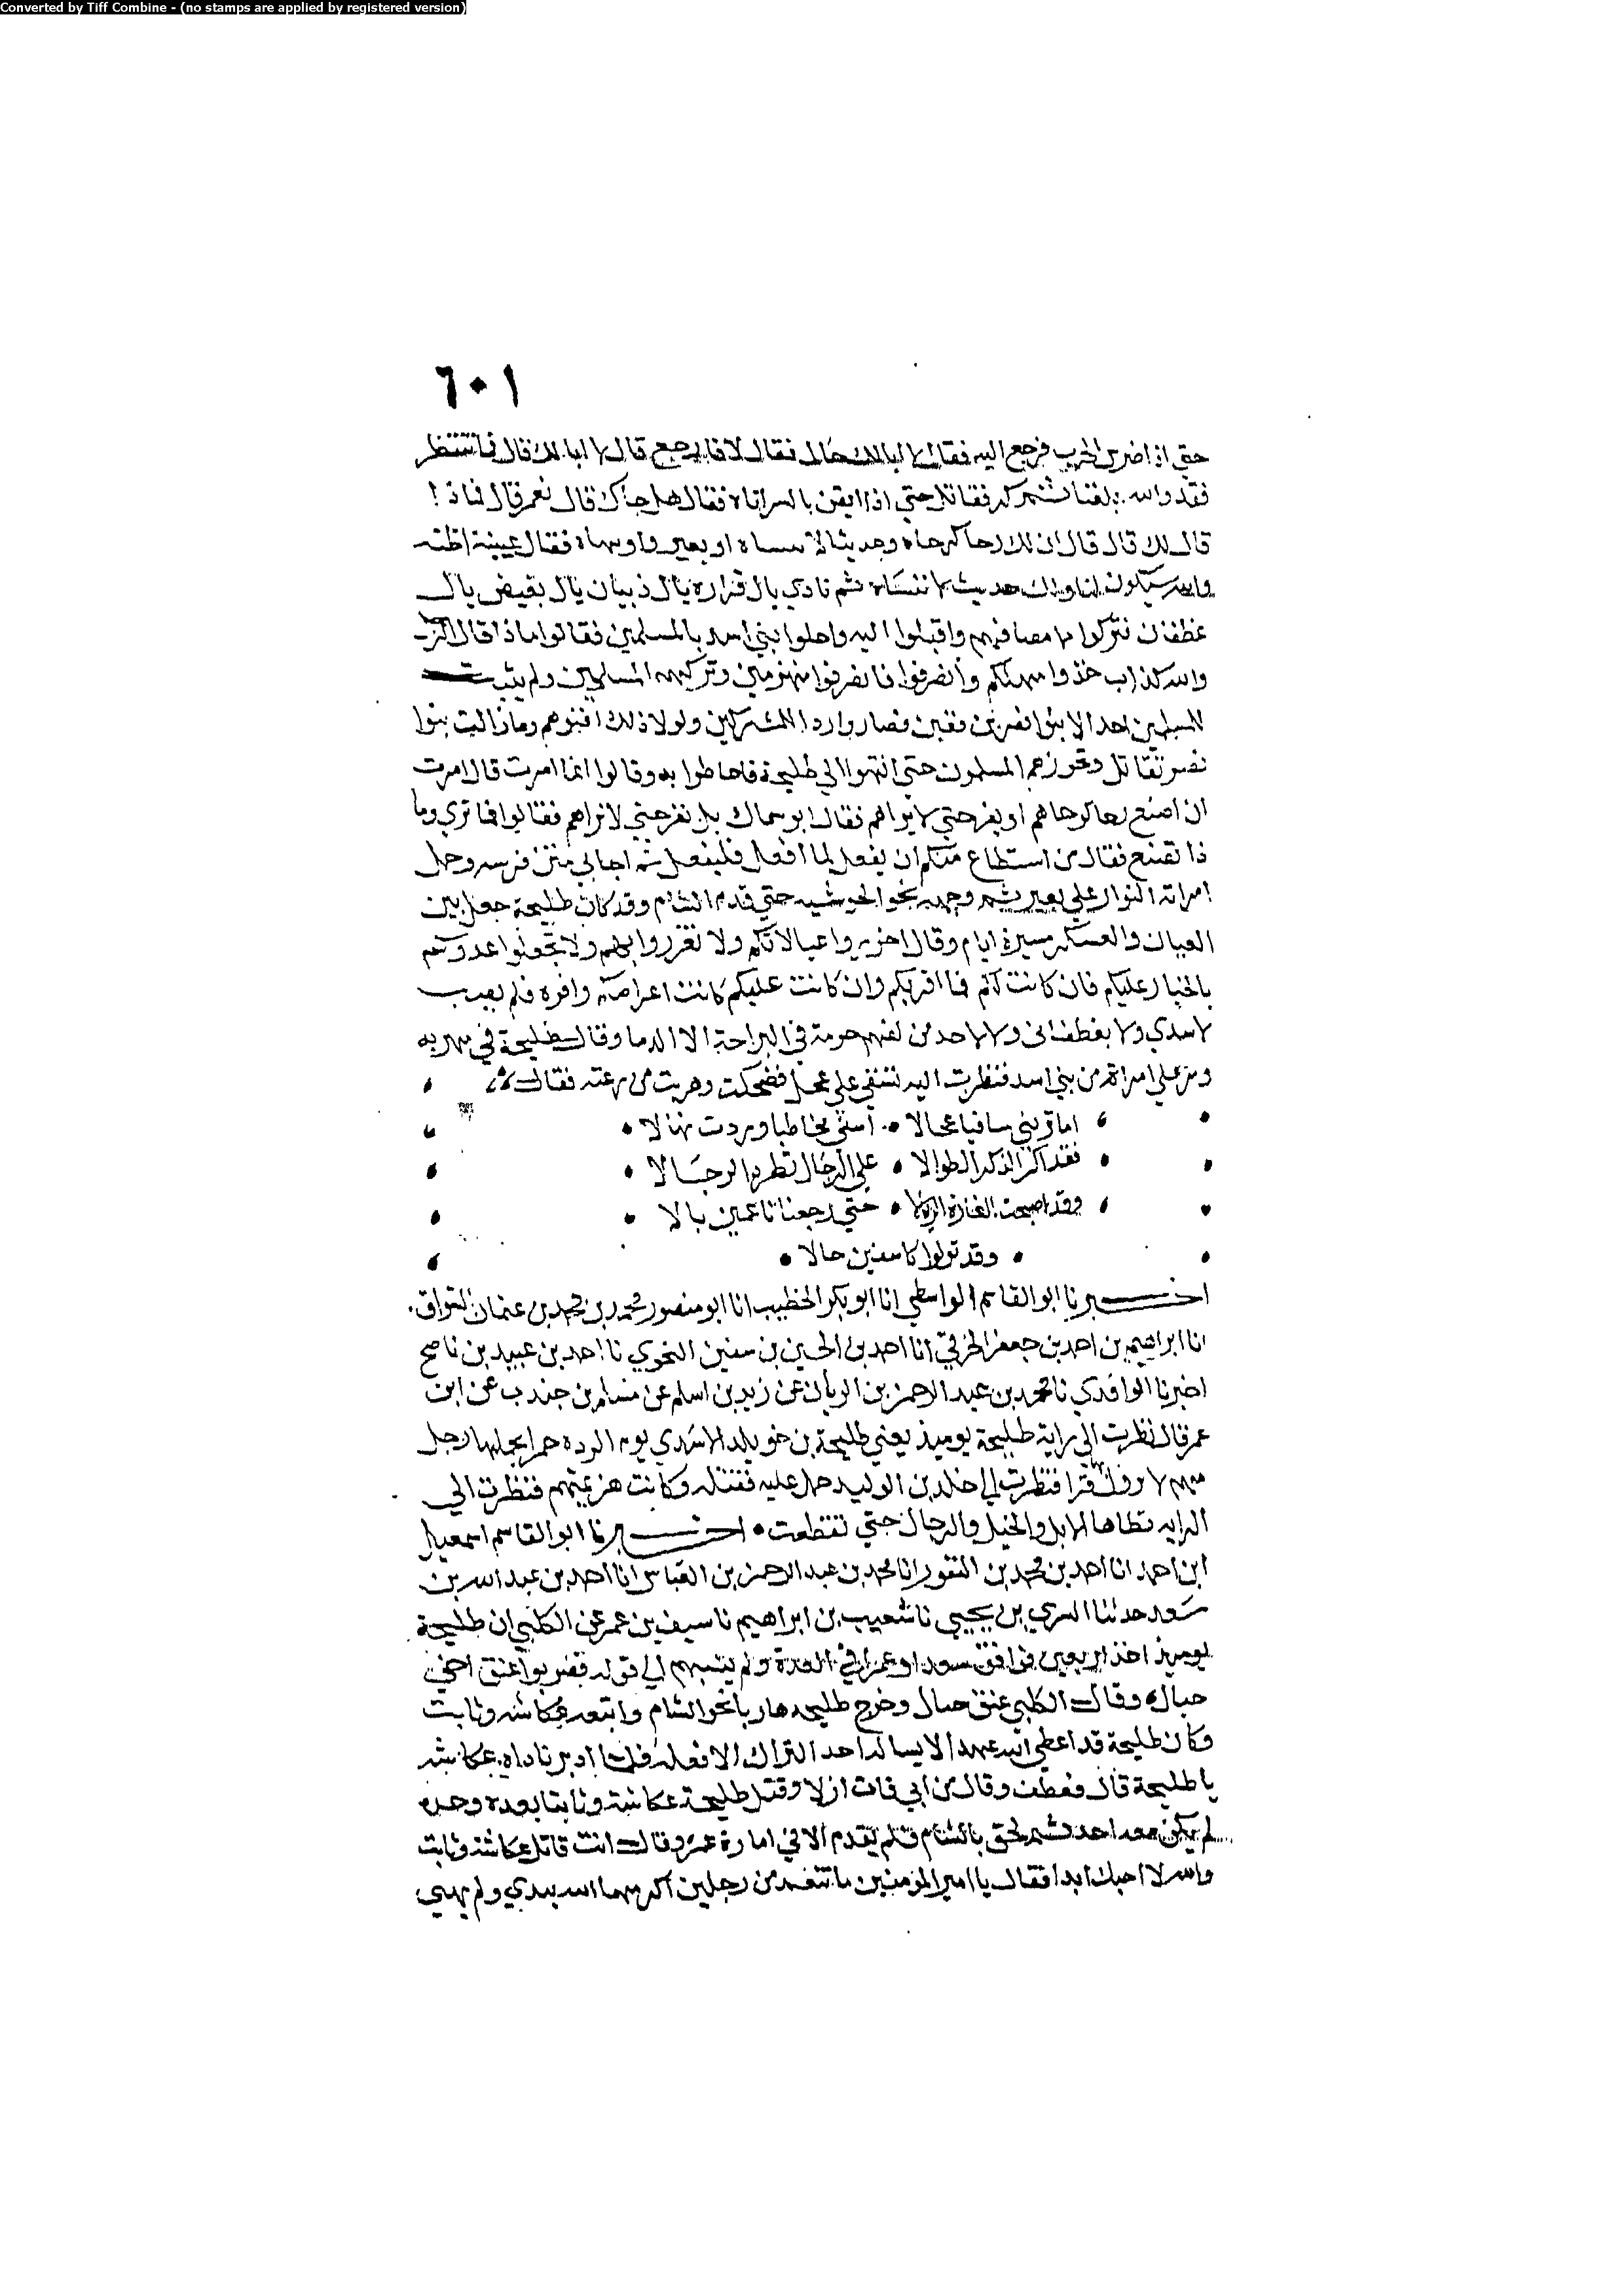 Converted by Tiff Combine - (no stamps are applied by registered version)
٦٠١
حتي اذا ضرس الحرب فرجع اليه فقال لا ابا لك حال فقال لا فا يرجع قال لا ابا لك قال فما تنتظر
فقد والله بلغنا ثم كر فقاتل حتي اذا ايقن بالسر اتاه فقال هل جاك قال نعم قال فماذا
قال لك قال قال ان لك رحا كرحاه وحديثا لا تنساه او بعير فقال عيينة اظنه
والله سيكون لنا ولك حديث لا ننساه ثم نادي يال فزاره يال ذبيان يال بغيض يال
غطفان فتركوا مصافهم واقبلوا اليه واحلوا بني اسد بالمسلمين فقالوا ماذا قال الرجل
والله كذاب خذوا وانصرفوا فانصرفوا منهزمين وتركهم المسلمين ولم يثبت
للمسلمين احد الا بنوا نصر بن قعين فصاروا ردا للمشركين ولولا ذلك افنوهم وما زالت بنوا
نصر تقاتل وتحوزهم المسلمون حتي انتهوا الي طليحة فاحاطوا به وقالوا انما امرت قال امرت
ان اصنع رحا كرحاهم او يفر حتي لا يراهم فقال ابو سماك بل نفر حتي لا نراهم فقالوا فما تري وما
ذا تصنع فقال من استطاع منكم ان يفعل كما افعل فليفعل ثم اجالي متن فرسه وحمل
امراته النوار علي بعير ثم وجه نحو الحوشيه حتي قدم الشام وقد كان طليحة جعل بين
العيال والعسكر مسيرة ايام وقال احزروا عيالاتكم ولا تغرروا بهم ولا تجعلوا عدوكم
بالخيار عليكم فان كانت لكم فما اقربكم وان كانت عليكم كانت اعراضكم وافره فلم يصب
لاسدي ولا بغطفاني ولا لاحد من لفهم حومة في البراحة الا الدما وقال طليحة في هربه
ومر علي امراة من بني اسد فنظرت اليه تستقي علي عجل فضحكت وهربت من سرعته فقال
اما تريني ساقيا عجالا • اسقي مخاطبا وردت نهالا
فقد اكر الذكر الطوالا • علي الرجال تطرد الرجالا
وقد اصبحت الغارة الرعالا • حتي رجعنا ناعمين بالا
وقد تولوا كاسفين حالا
اخبرنا ابو القاسم الواسطي انا ابو بكر الخطيب انا ابو منصور محمد بن محمد بن عثمان السواق
انا ابراهيم بن احمد بن جعفر الخرقي انا احمد بن الحسين بن سفين النحوي نا احمد بن عبيد بن ناصح
اخبرنا الواقدي نا محمد بن عبد الرحمن بن الريان عن زيد بن اسلم عن مسلم بن جندب عن ابن
عمر قال نظرت الي راية طليحة يوميذ يعني طليحة بن خويلد الاسدي يوم الرده حمرا يحملها رجل
منهم لا يزول بها فترا فنظرت الي خالد بن الوليد حمل عليه فقتله وكانت هزيمتهم فنظرت الي
الرايه تطاها الابل والخيل والرجال حتي تقطعت • اخبرنا ابو القاسم اسمعيل
ابن احمد انا احمد بن محمد بن النقور انا محمد بن عبد الرحمن بن العباس انا احمد بن عبد الله بن
سعد حدثنا السري بن يحيي نا شعيب بن ابراهيم نا سيف بن عمر عن الكلبي ان طليحة
يوميذ اخذ اربعين فوافق سعدا وعمرا في العدة ولم ينسبهم الي قوله فضربوا عنق اخي
حبال وقال الكلبي عنق حبال وخرج طليحه هاربا نحو الشام واتبعه عكاشه وثابت
وكان طليحة قد اعطي الله عهدا لا يساله احد النزال الا فعله فلما ادبر ناداه عكاشه
يا طليحة قال فعطف وقال من ابي فات ازلا وقتل طليحة عكاشة وثابتا بعده وحده
لم يكن معه احد ثم لحق بالشام فلم يقدم الا في امارة عمر وقال انت قاتل عكاشة وثابت
والله لا احبك ابدا فقال يا امير المومنين ما تنقم من رجلين اكرمهما الله بيدي ولم يهني